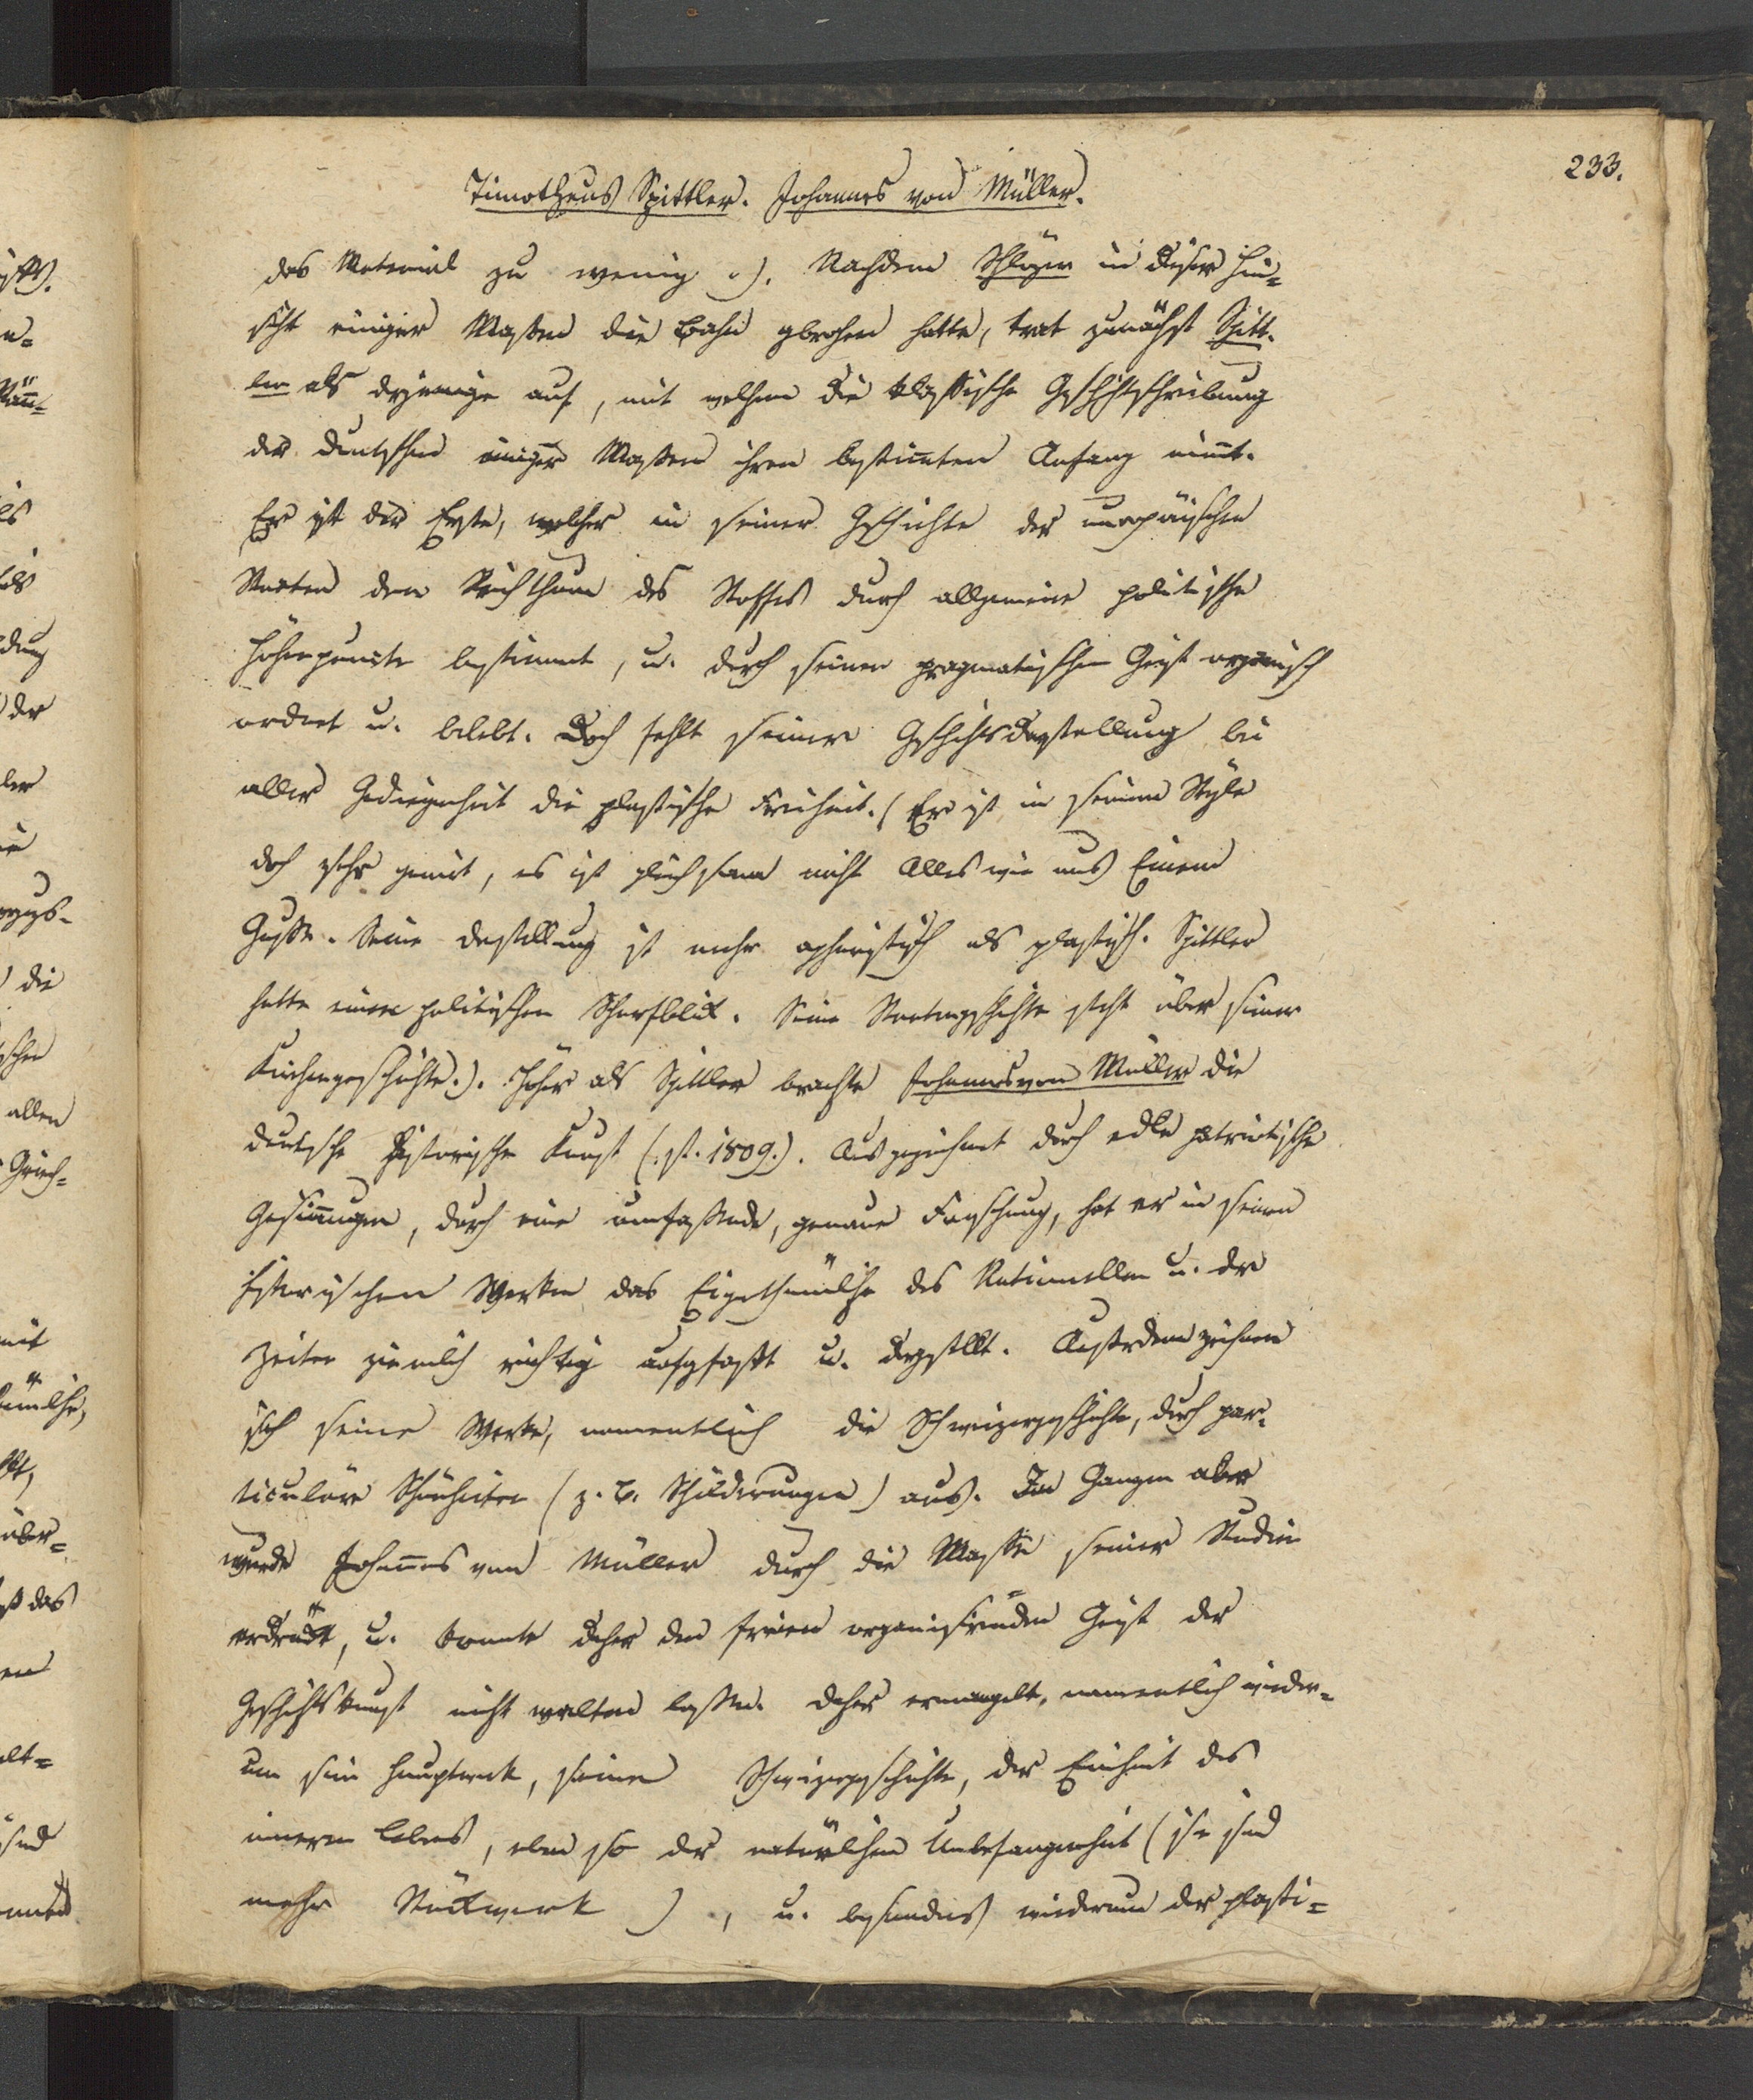 233.
Timotheus Spittler. Johannes von Müller.
das Material zu wenig .). Nachdem Schlözer in dieser Hin-
sicht einiger Maßen die Bahn gebrochen hatte, trat zunächst Spitt-
ler als derjenige auf, mit welchem die klassische Geschichtschreibung
der Deutschen einiger Maßen ihren bestim̅ten Anfang nim̅t.
Er ist der Erste, welcher in seiner Geschichte der europäischen
Staaten den Reichthum des Stoffes durch allgemeine politische
Höhenpuncte bestimmt, u. durch seinen pragmatischen Geist organisch
ordnet u. belebt. Doch fehlt seiner Geschichtsdarstellung bei
aller Gediegenheit die plastische Freiheit. (Er ist in seinem Style
doch sehr genirt, es ist gleichsam nicht Alles wie aus Einem
Gusse. Seine Darstellung ist mehr aphoristisch als plastisch. Spittler
hatte einen politischen Scharfblick. Seine Staatengeschichte steht über seiner
Kirchengeschichte.). Höher als Spittler brachte Johannes von Müller die
deutsche historische Kunst (.st. 1809.). Ausgezeichnet durch edle patriotische
Gesin̅ungen, durch eine umfassende, genaue Forschung, hat er in seinen
historischen Werken das Eigenthümliche des Nationellen u. der
Zeiten ziemlich richtig aufgefaßt u. dargestellt. Außerdem zeichnen
sich seine Werke, namentlich die Schweizergeschichte, durch par-
ticuläre Schönheiten (z. B. Schilderungen) aus. Im Ganzen aber
wurde Johan̅es von Müller durch die Masse seiner Studien
erdrückt, u. konnte daher den freien organisirenden Geist der
Geschichtskunst nicht walten lassen. Daher ermangelt, namentlich wieder-
um sein Hauptwerk, seine Schweizergeschichte, der Einheit des
inneren Lebens, eben so der natürlichen Unbefangenheit (sie sind
mehr Stückwerk ), u. besonders wiederum der plasti-